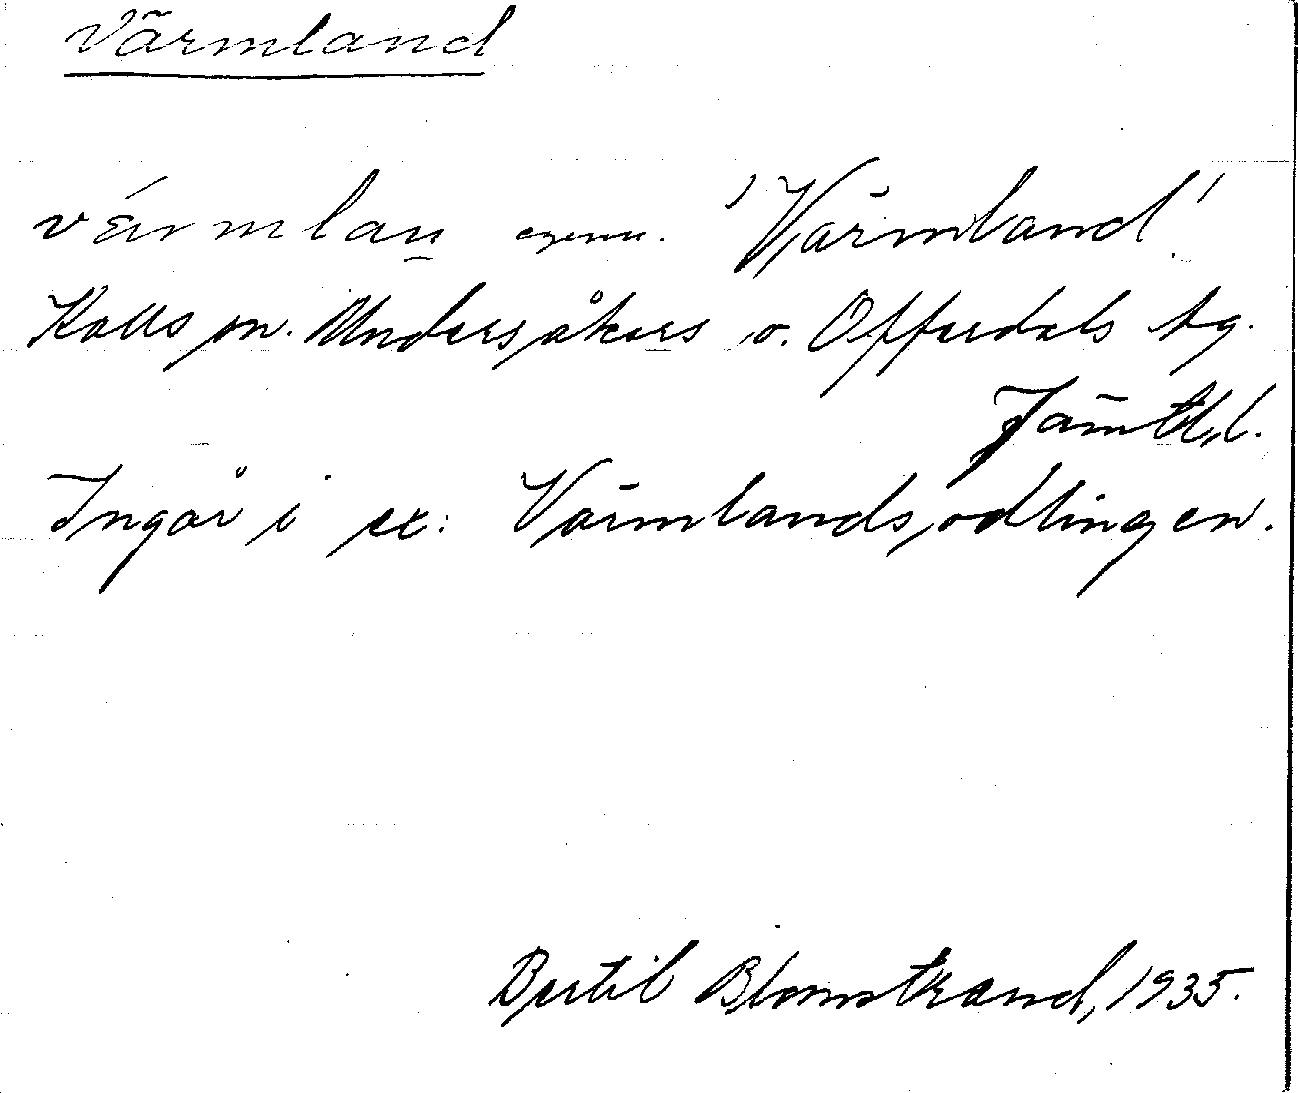 Värmland
värmlan egenn. 'Värmland'
Kalls sn. Undersåkers o. Offerdals tg.
Jämtl. l.
Ingår i ex: Värmlandsodlingen.
Bertil Blomstrand, 1935.